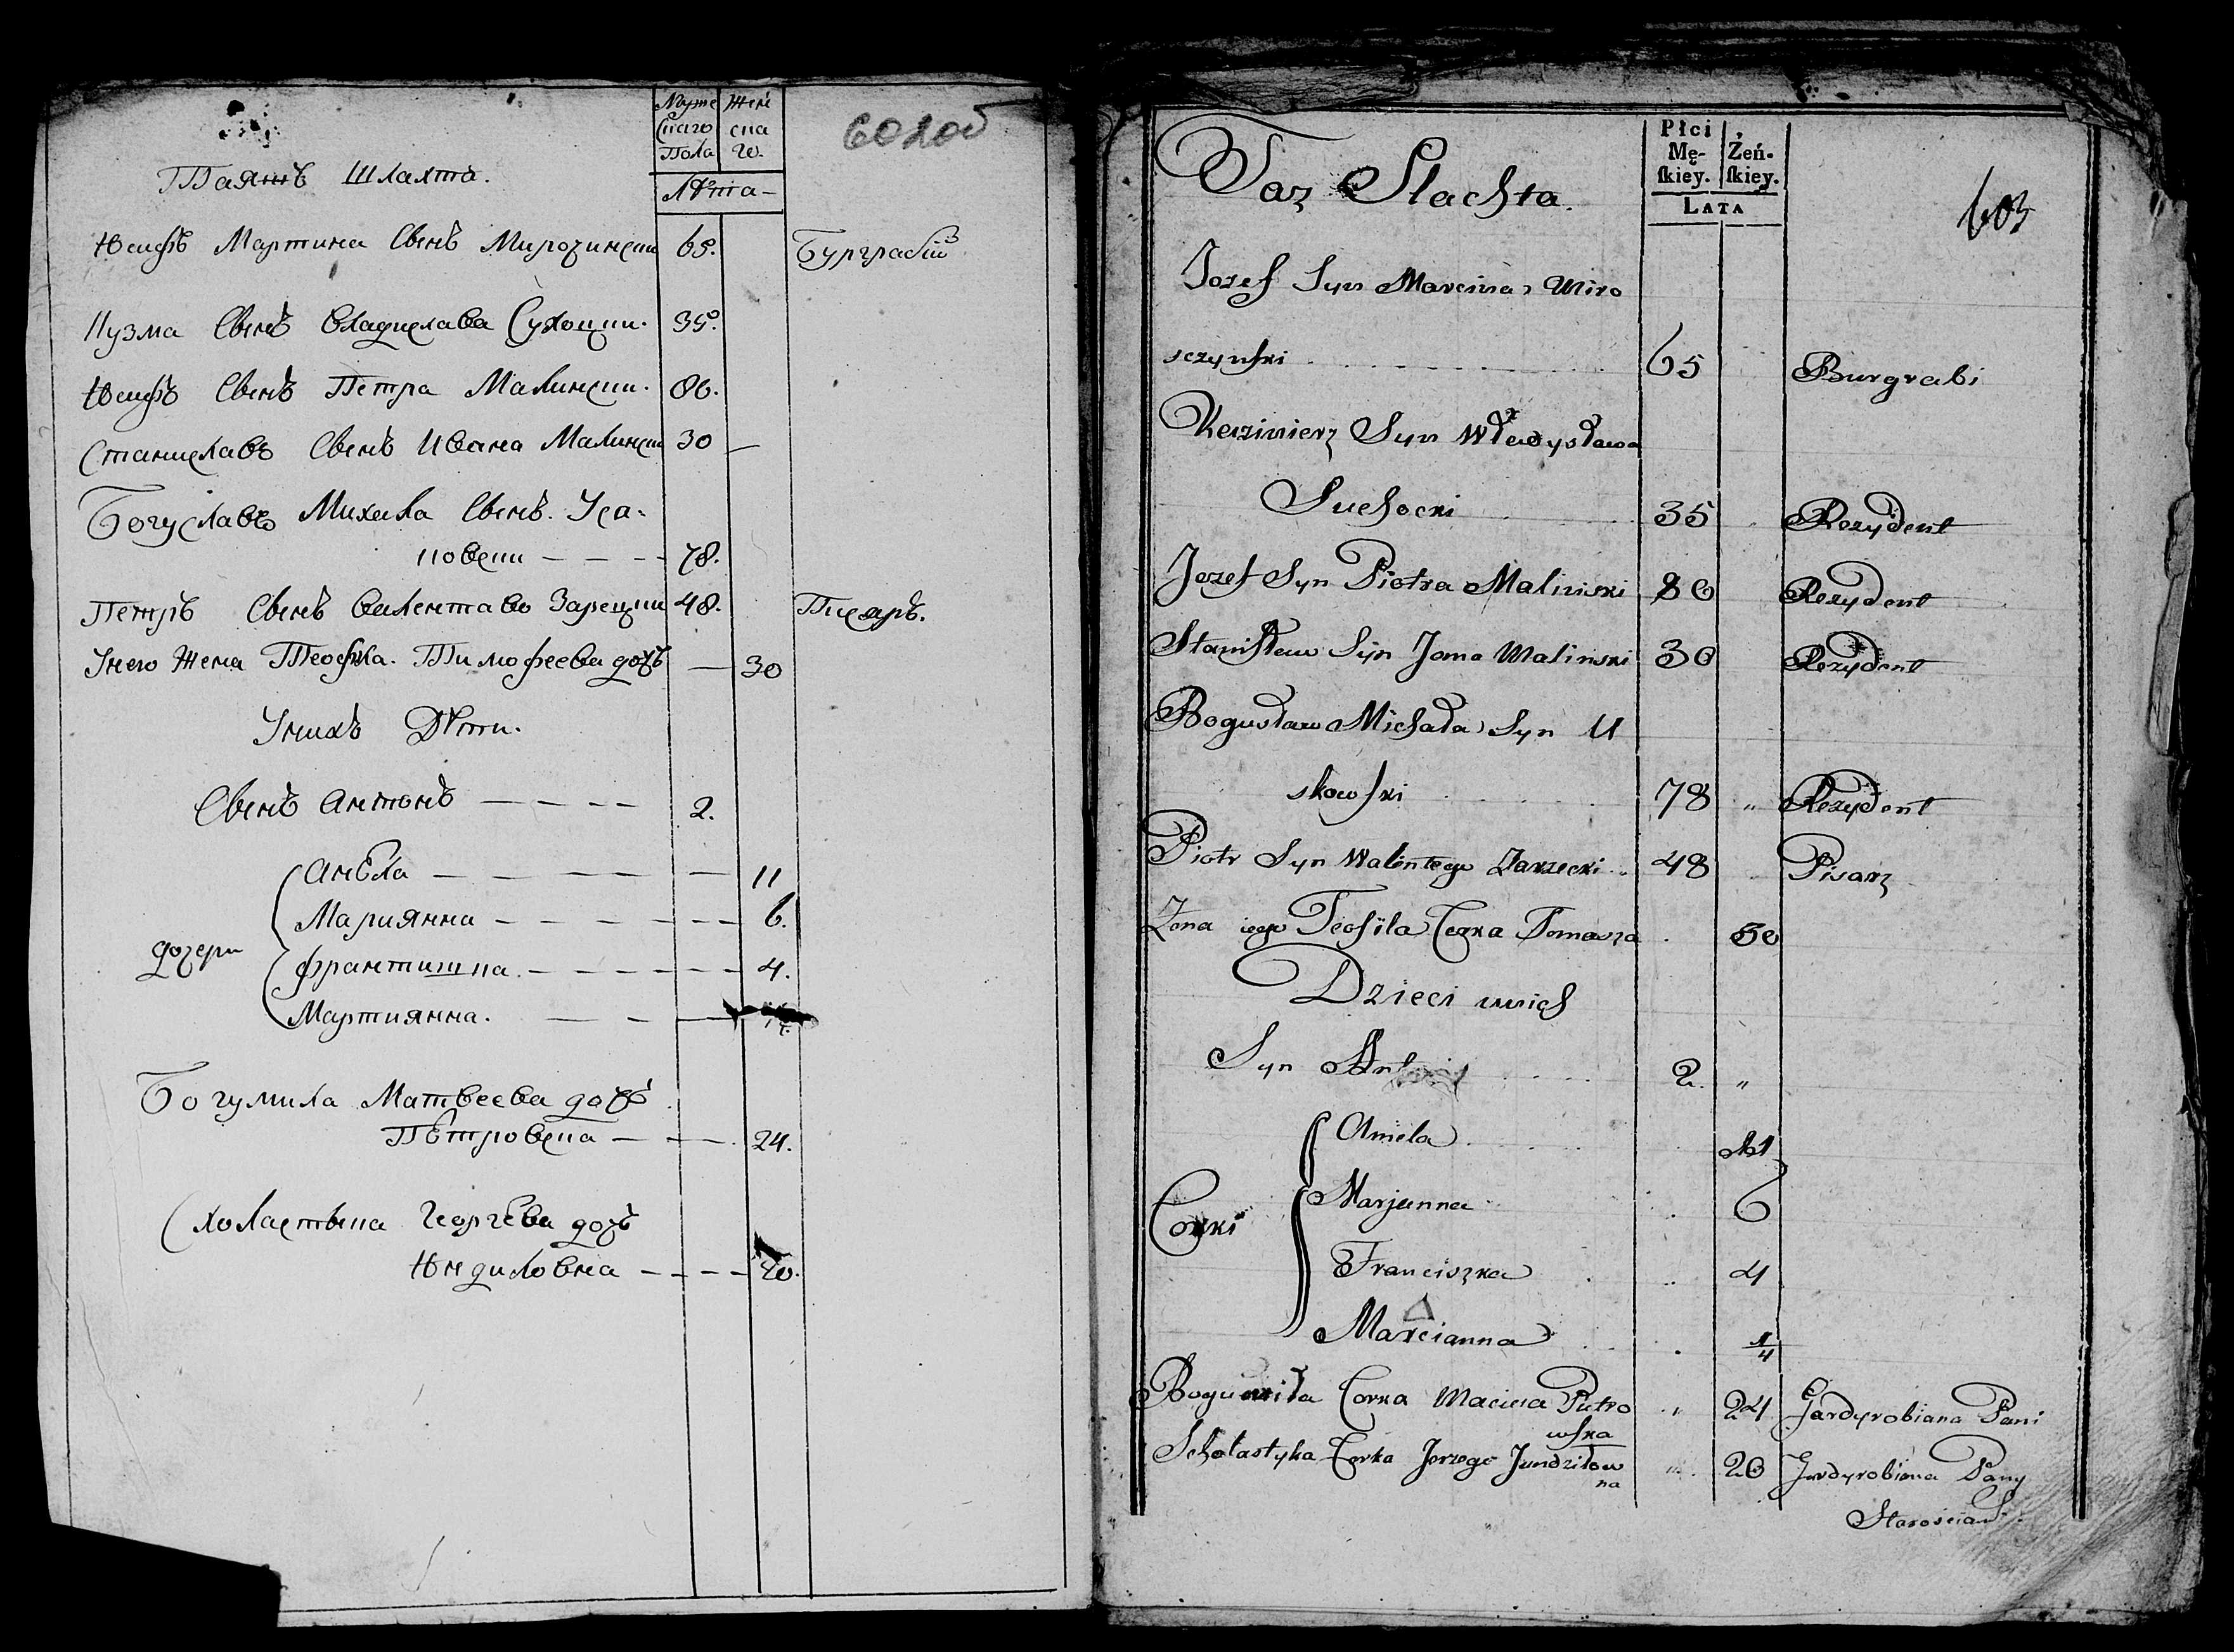 Муже Жен
скаго ска
Пола го.
Лѣта
602об
Таяжъ Шляхта.
Юсифъ Мартина Сынъ Мирочински 65. Бурграбій
Кузма Сынъ Владислава Сухоцки. 35.
Юсифъ Сынъ Петра Малински. 86.
Станиславъ Сынъ Ивана Малински 30 —
Богуславъ Михала Сынъ. Уса-
ковски — — — 78.
Петръ Сынъ Валентаво Зарецки 48. Писарь.
Унего Жена Теофила. Тимофеева дочь — 30
Унихъ Дѣти.
Сынъ Антонъ — — — — 2.
Анѣла — — — — — 11
Марианна — — — — — 6.
дочери
Франтишка. — — — — — 4.
Мартианна. — — —
Богумила Матвеева дочь
Пѣтровска — — — 24.
Схоластыка Георгева дочь
Юндиловна — — — — 20.
Płci
Mę- Żeń-
ſkiey. ſkiey.
LATA
603
Taz Slachta.
Jozef Syn Marcina Miro
sczynſki 65 Burgrabi
Kazimierz Syn Władysława
Suchocki 35 Rezydent
Jozef Syn Piotra Malinski 86 Rezydent
Stanisław Syn Jana Malinski 30 Rezydent
Bogusław Michała Syn U
skowſki 78 „ Rezydent
Piotr Syn Walentego Zarzecki 48 Pisarz
Żona iego Teofila Corka Tomasza 30
Dzieci unich
Syn 2 „
Aniela 11
Marjanna 6
Corki
Franciszka 4
Marcianna 1/4
Bogumiła Corka Macieia Pietro „ 24 Gardyrobiana Pani
wſka
Scholastyka Corka Jerzego Jundziłow „ 20 Gardyrobiana Panny
na
Starościan